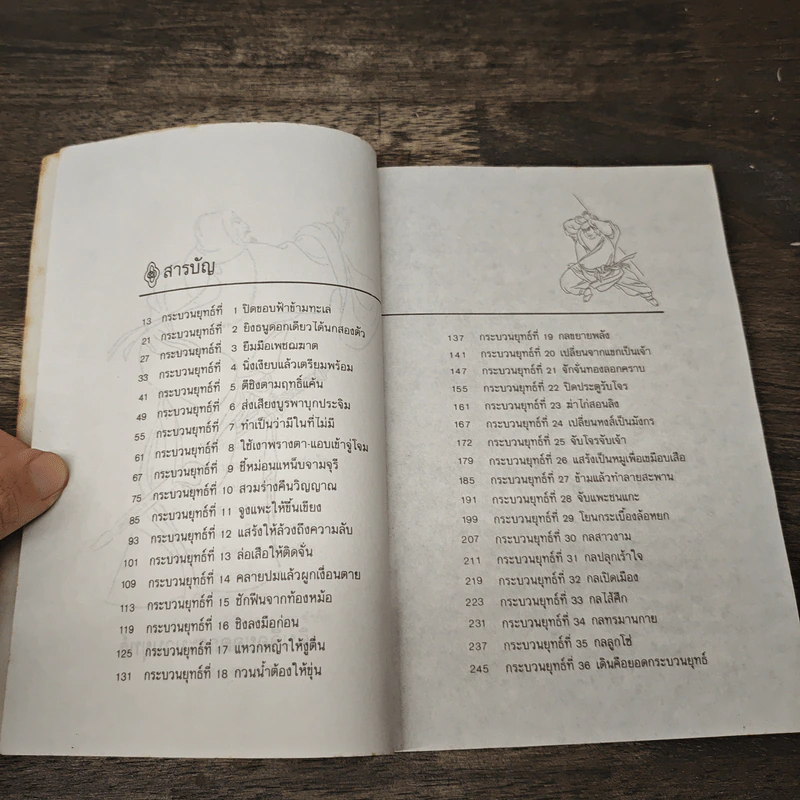 สารบัญ
13 กระบวนยุทธ์ที่ 1 ปิดขอบฟ้าข้ามทะเล
21 กระบวนยุทธ์ที่ 2 ยิงธนูดอกเดียวได้นกสองตัว
27 กระบวนยุทธ์ที่ 3 ยืมมือเพชฌฆาต
33 กระบวนยุทธ์ที่ 4 นิ่งเงียบแล้วเตรียมพร้อม
41 กระบวนยุทธ์ที่ 5 ตีชิงตามฤทธิ์แค้น
49 กระบวนยุทธ์ที่ 6 ส่งเสียงบูรพาบุกประจิม
55 กระบวนยุทธ์ที่ 7 ทำเป็นว่ามีในที่ไม่มี
61 กระบวนยุทธ์ที่ 8 ใช้เงาพรางตา-แอบเข้าจู่โจม
67 กระบวนยุทธ์ที่ 9 ชี้หม่อนแหน็บจามจุรี
75 กระบวนยุทธ์ที่ 10 สวมร่างคืนวิญญาณ
85 กระบวนยุทธ์ที่ 11 จูงแพะให้ขึ้นเขียง
93 กระบวนยุทธ์ที่ 12 แสร้งให้ล้วงถึงความลับ
101 กระบวนยุทธ์ที่ 13 ล่อเสือให้ติดจั่น
109 กระบวนยุทธ์ที่ 14 คลายปมแล้วผูกเงื่อนตาย
113 กระบวนยุทธ์ที่ 15 ชักฟืนจากท้องหม้อ
119 กระบวนยุทธ์ที่ 16 ชิงลงมือก่อน
125 กระบวนยุทธ์ที่ 17 แหวกหญ้าให้งูตื่น
131 กระบวนยุทธ์ที่ 18 กวนน้ำต้องให้ขุ่น
137 กระบวนยุทธ์ที่ 19 กลขยายพลัง
141 กระบวนยุทธ์ที่ 20 เปลี่ยนจากแขกเป็นเจ้า
147 กระบวนยุทธ์ที่ 21 จักจั่นทองลอกคราบ
155 กระบวนยุทธ์ที่ 22 ปิดประตูรับโจร
161 กระบวนยุทธ์ที่ 23 ฆ่าไก่สอนลิง
167 กระบวนยุทธ์ที่ 24 เปลี่ยนหงส์เป็นมังกร
172 กระบวนยุทธ์ที่ 25 จับโจรจับเจ้า
179 กระบวนยุทธ์ที่ 26 แสร้งเป็นหมูเพื่อเขมือบเสือ
185 กระบวนยุทธ์ที่ 27 ข้ามแล้วทำลายสะพาน
191 กระบวนยุทธ์ที่ 28 จับแพะชนแกะ
199 กระบวนยุทธ์ที่ 29 โยนกระเบื้องล้อหยก
207 กระบวนยุทธ์ที่ 30 กลสาวงาม
211 กระบวนยุทธ์ที่ 31 กลปลุกเร้าใจ
219 กระบวนยุทธ์ที่ 32 กลเปิดเมือง
223 กระบวนยุทธ์ที่ 33 กลไส้ศึก
231 กระบวนยุทธ์ที่ 34 กลทรมานกาย
237 กระบวนยุทธ์ที่ 35 กลลูกโซ่
245 กระบวนยุทธ์ที่ 36 เดินคือยอดกระบวนยุทธ์